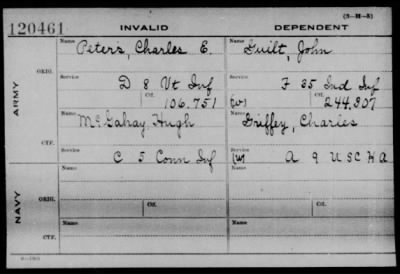 (3-H-5)
120461 INVALID DEPENDENT
Name Name
Peters, Charles E. (W) Guilt, John
ARMY
ORIG.
Service Service
D 8 Vt Inf F 35 Ind Inf
Ctf. Ctf.
106.751 (W) 244,307
Name Name
McGahay, Hugh Griffey, Charles
CTF.
Service Service
C 5 Conn Inf (W) A 9 U S C H A
NAVY
ORIG.
Name Name
Ctf. Ctf.
CTF.
Name Name